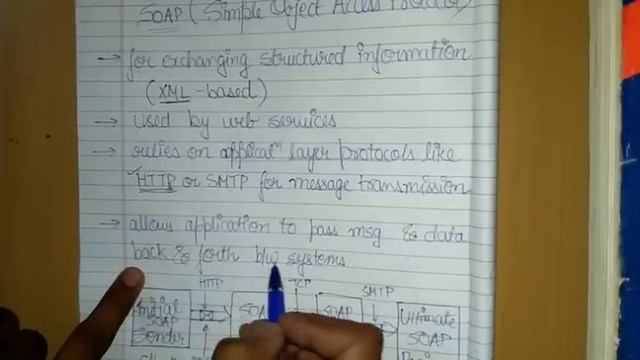 SOAP (Simple Object Access Protocol)
→ for exchanging structured information
(XML-based)
→ used by web services
→ relies on applicatn layer protocols like
HTTP or SMTP for message transmission
→ allows application to pass msg & data
back & forth b/w systems
HTTP TCP SMTP
Initial SOAP Sender
SOAP
Ultimate SOAP